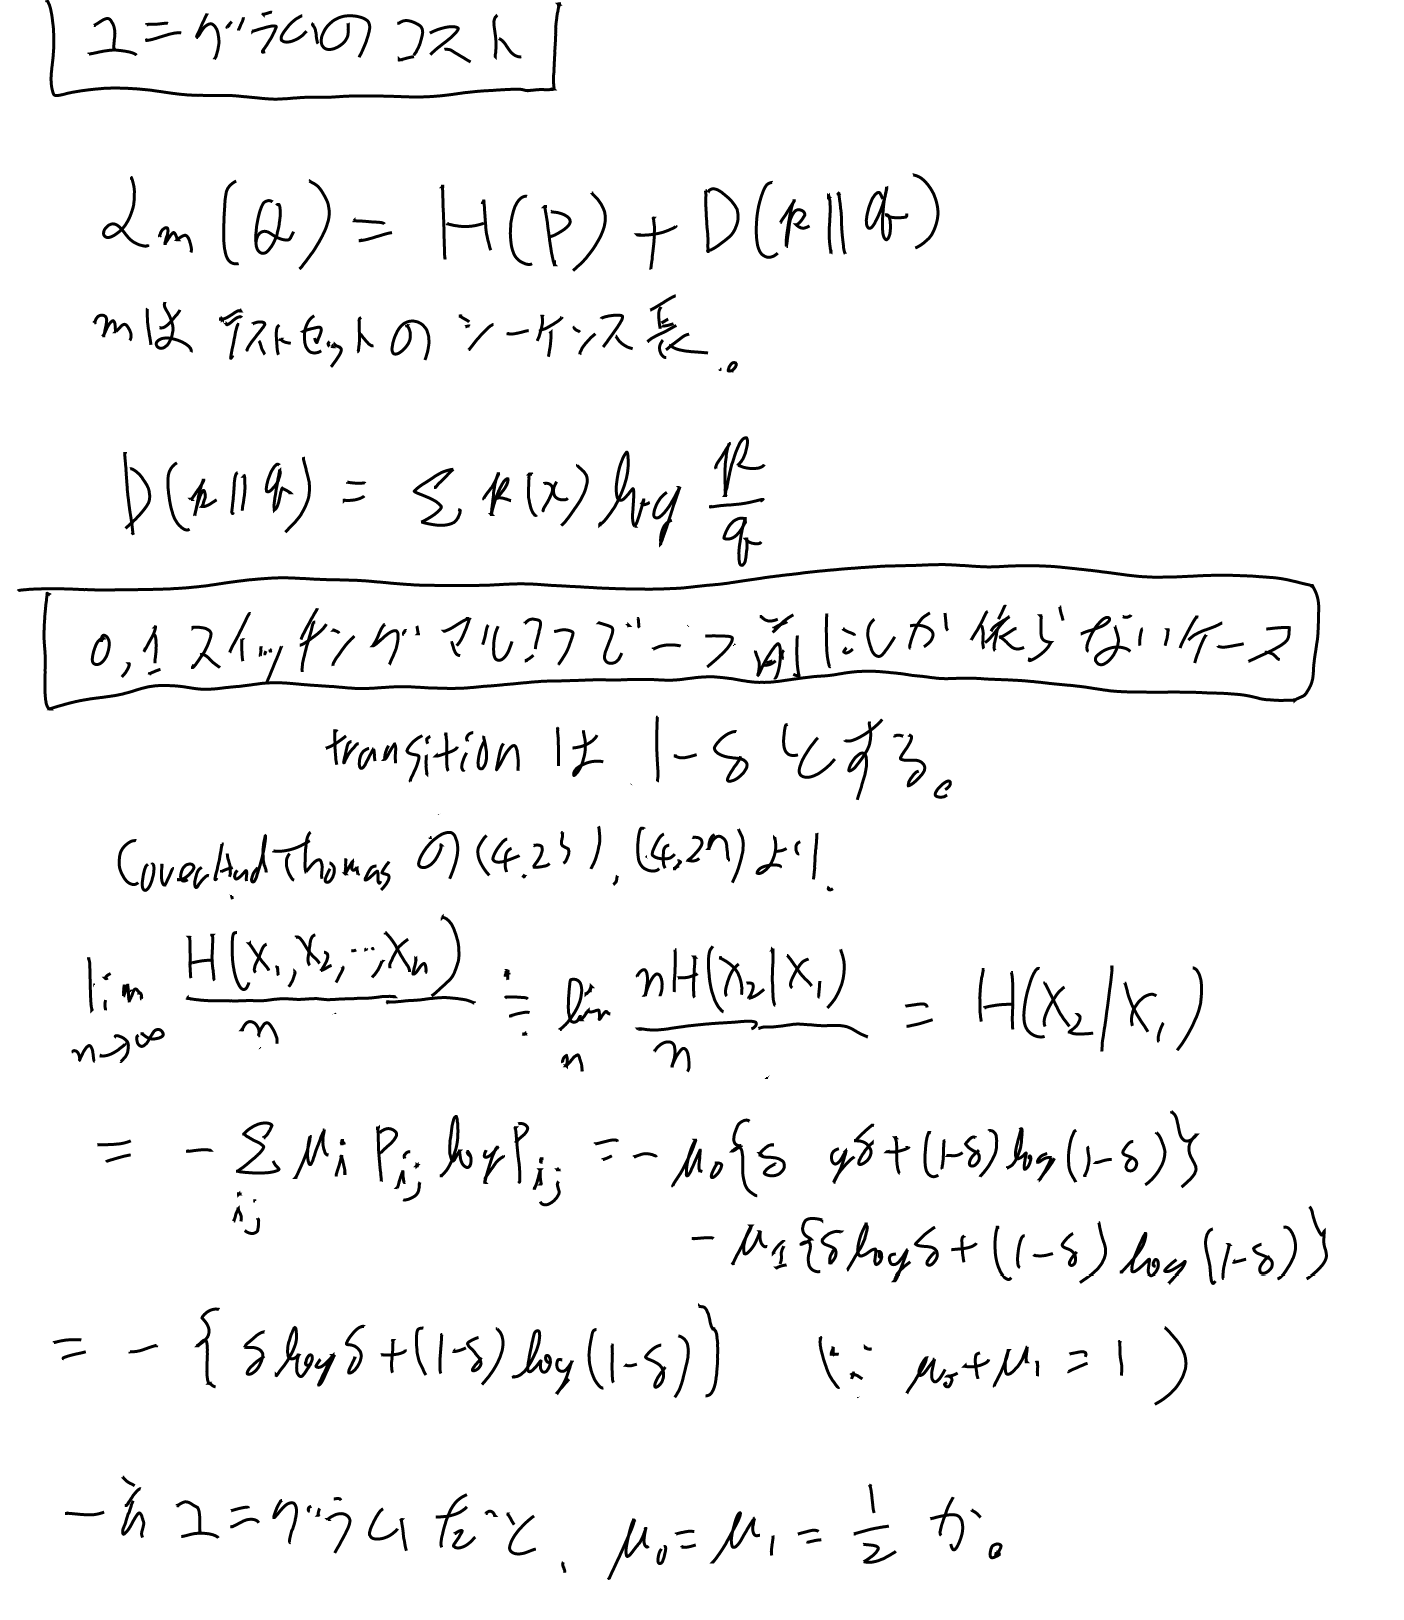 ユニグラムのコスト
Lm(Q) = H(P) + D(p||q)
mは テストセットの シーケンス長。
D(p||q) = Σ p(x) log p/q
0,1 スイッチング マルコフで一つ前にしか依らないケース
transition は 1-δ とする。
Cover And Thomas の (4.25), (4,27) より.
lim n→∞ H(X₁,X₂,…,Xn)/n ≒ lim n nH(X₂|X₁)/n = H(X₂|X₁)
= - Σ ij μi Pij log Pij = - μ₀{δ gδ+(1-δ) log(1-δ)}
- μ₁{δ log δ + (1-δ) log (1-δ)}
= - { δ log δ +(1-δ) log (1-δ)} (∵ μ₀+μ₁ = 1 )
一方 ユニグラムだと、 μ₀ = μ₁ = 1/2 か。